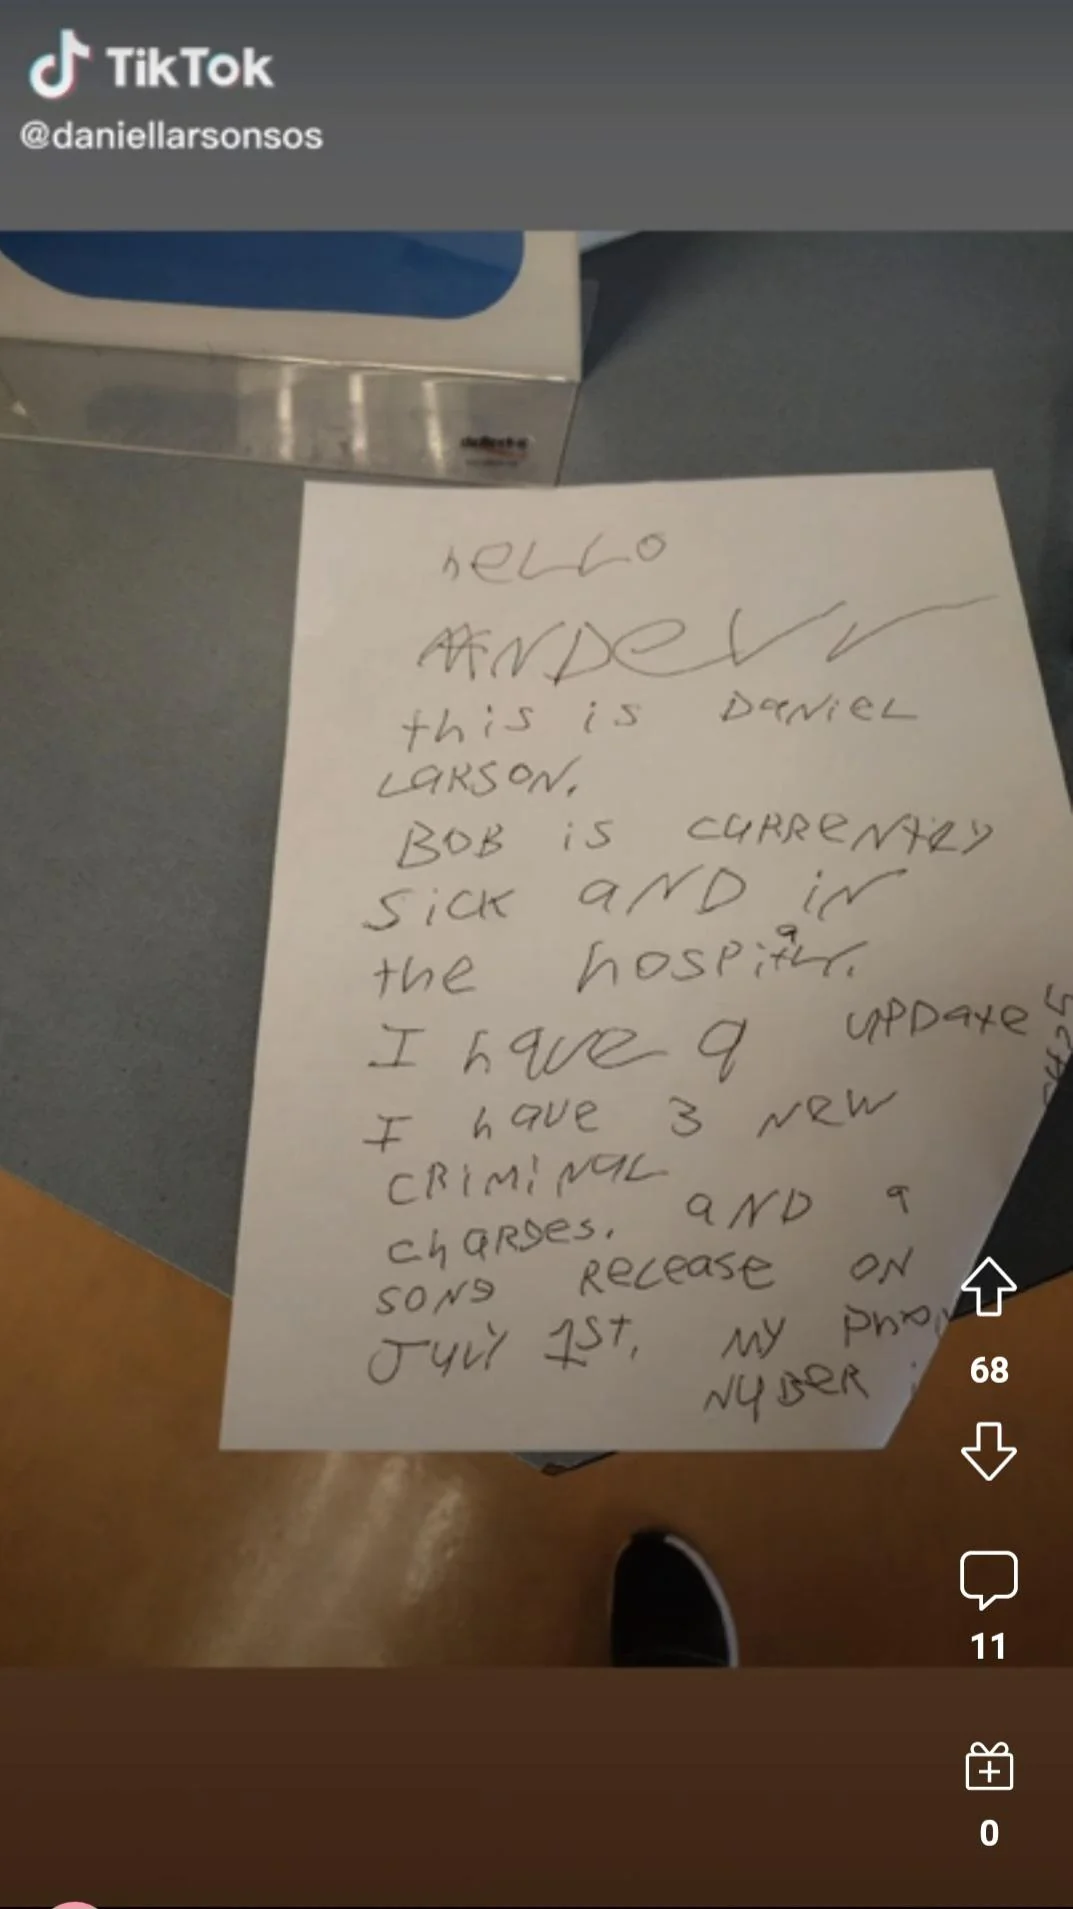 TikTok
@daniellarsonsos
hELLO
this is DaNiEL
LARSON.
BOB is CURReNtLY
SiCK aND iN
the hospital.
I have a UPDate
I have 3 New
CRiMiNaL
chARges. aND a
SONg Release ON
JULY 1st. MY
NUBeR
68
11
0